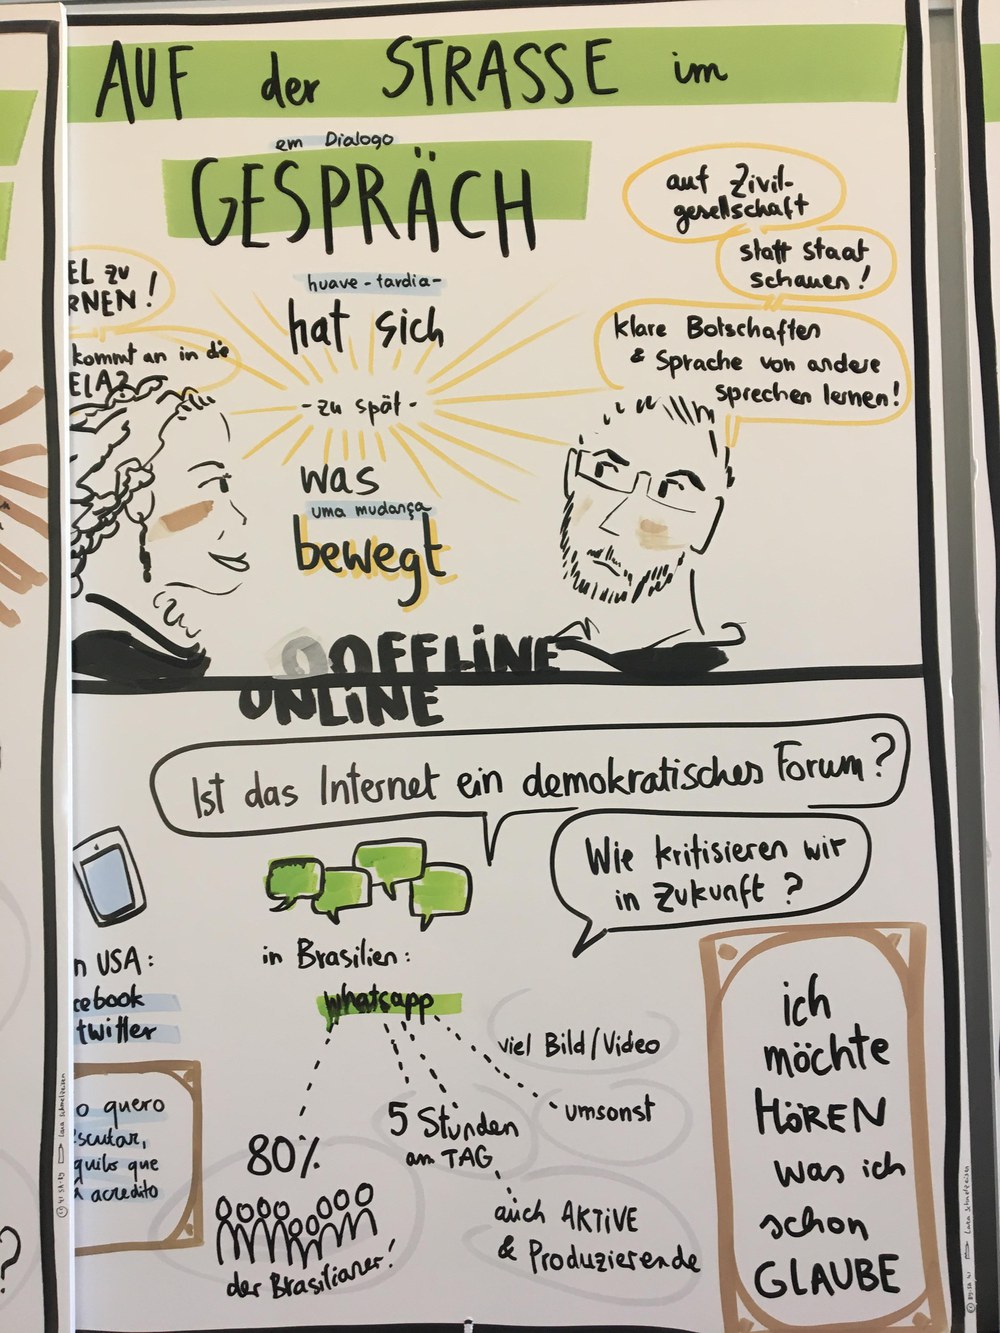 AUF der STRASSE im
em Dialogo
GESPRÄCH
auf Zivil-
gesellschaft
statt staat
schauen!
klare Botschaften
& Sprache von andere
sprechen lernen!
EL zu
RNEN!
kommt an in die
ELA?
huave - tardia -
hat sich
- zu spät -
was
uma mudança
bewegt
OFFLINE
ONLINE
Ist das Internet ein demokratisches Forum?
Wie kritisieren wir
in Zukunft?
n USA:
cebook
twitter
in Brasilien:
whatsapp
viel Bild/Video
umsonst
5 Stunden
am TAG
auch AKTiVE
& Produzierende
80%
der Brasilianer!
o quero
scutar,
quilo que
á acredito
ich
möchte
HÖREN
was ich
schon
GLAUBE